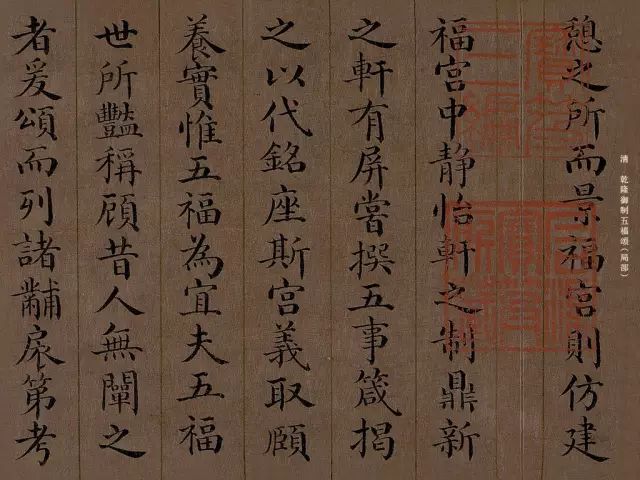 憩之所而景福宮則仿建
福宮中静怡軒之制鼎新
之軒有屏嘗撰五事箴揭
之以代銘座斯宮義取頤
養實惟五福為宜夫五福
世所豔稱顧昔人無闡之
者爰頌而列諸黼扆第考
清 乾隆御制五福頌(局部)